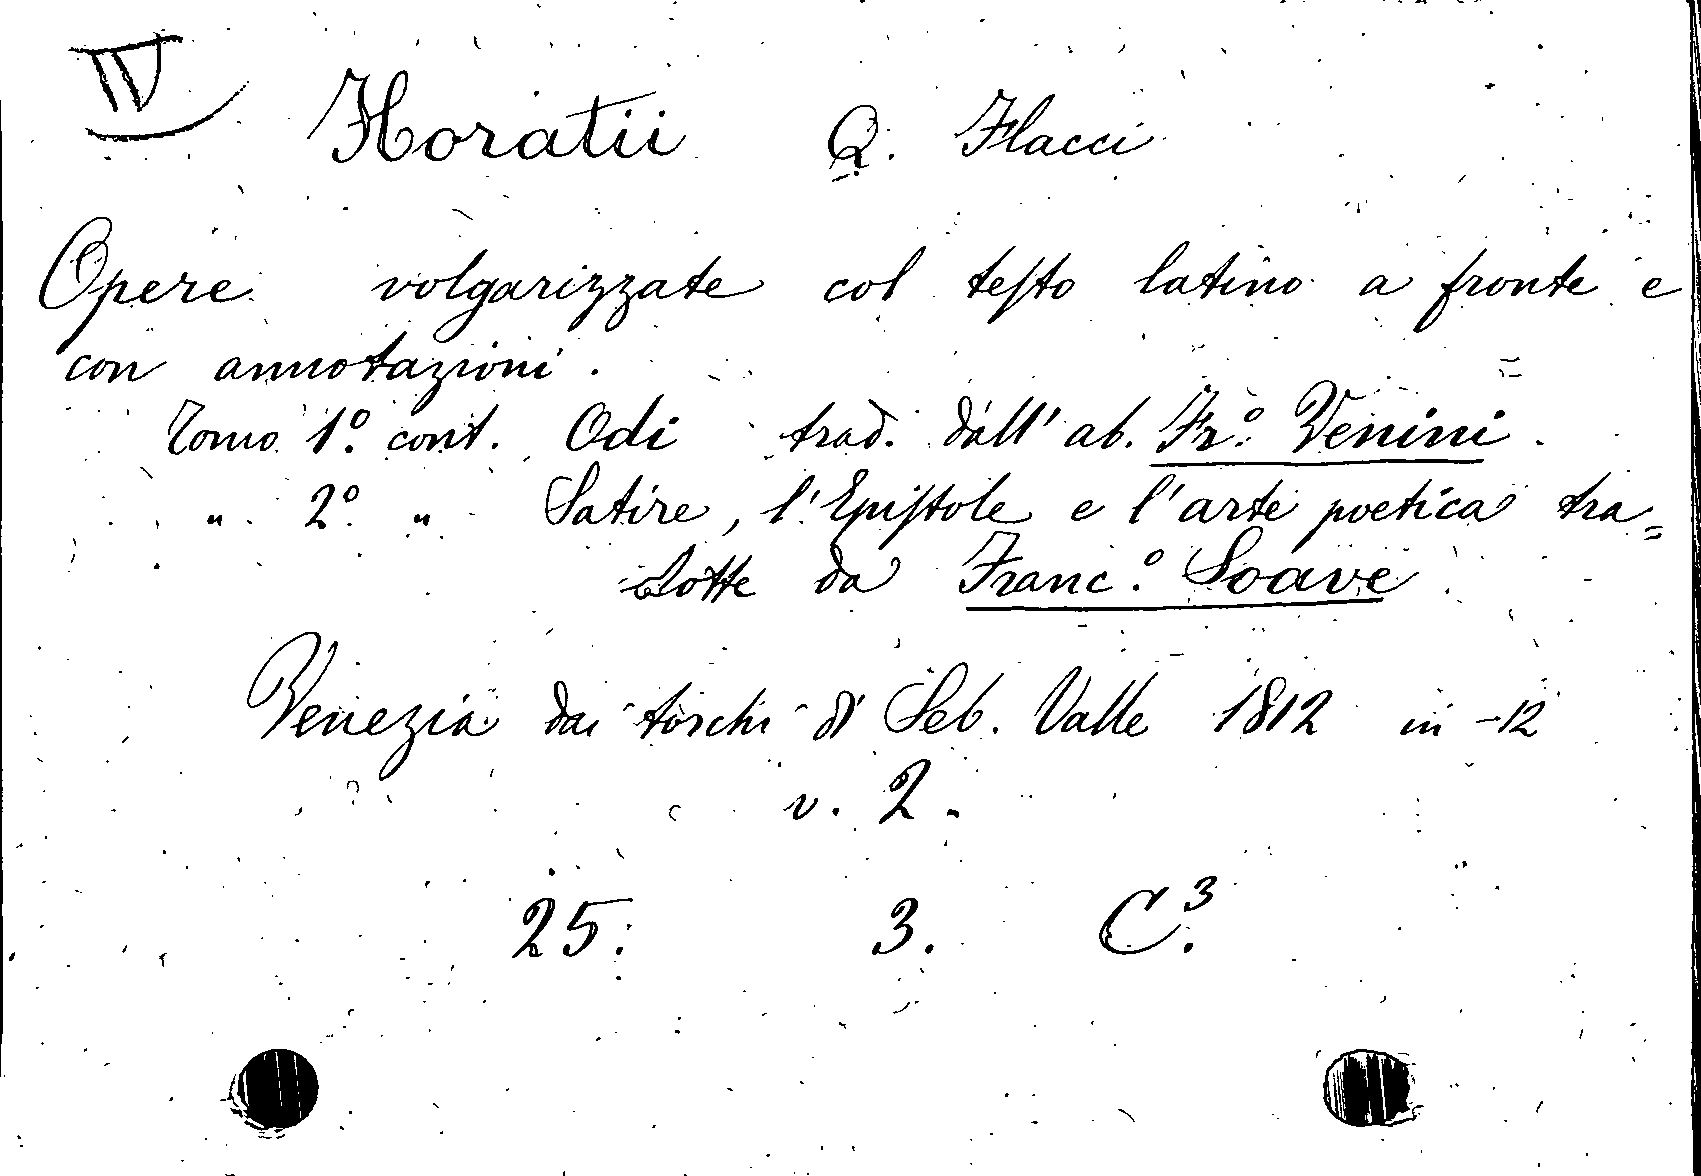 IV
Horatii Q. Flacci
Opere volgarizzate col testo latino a fronte e
con annotazioni.
Tomo 1º. cont. Odi trad. dall' ab. Frº. Venini.
„ 2º. „ Satire, l'Epistole e l'arte poetica tra=
dotte da Franc.º Soave
Venezia dai torchi di Seb. Valle 1812 in -12
v. 2.
25. 3. C.³